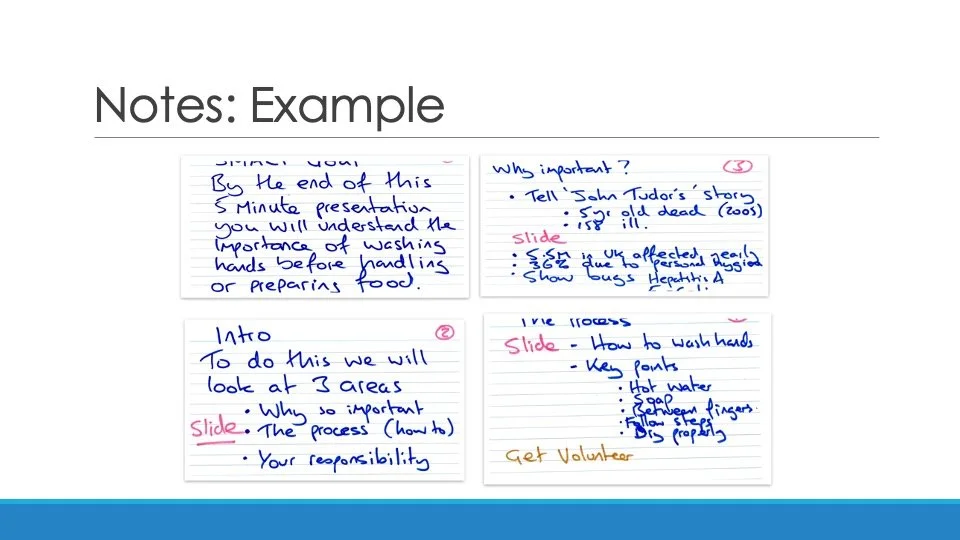 Notes: Example
SMART Goal
By the end of this
5 Minute presentation
you will understand the
importance of washing
hands before handling
or preparing food.
Why important? 3
• Tell 'John Tudor's' story
• 5yr old dead (2005)
• 158 ill.
Slide
• 5.5m in UK affected yearly
• 36% due to personal hygiene
• Show bugs Hepatitis A
Intro 2
To do this we will
look at 3 areas
• Why so important
Slide • The process (how to)
• Your responsibility
The Process
Slide - How to wash hands
- Key points
• Hot water
• Soap
• Between fingers.
• Follow steps
• Dry properly
Get Volunteer